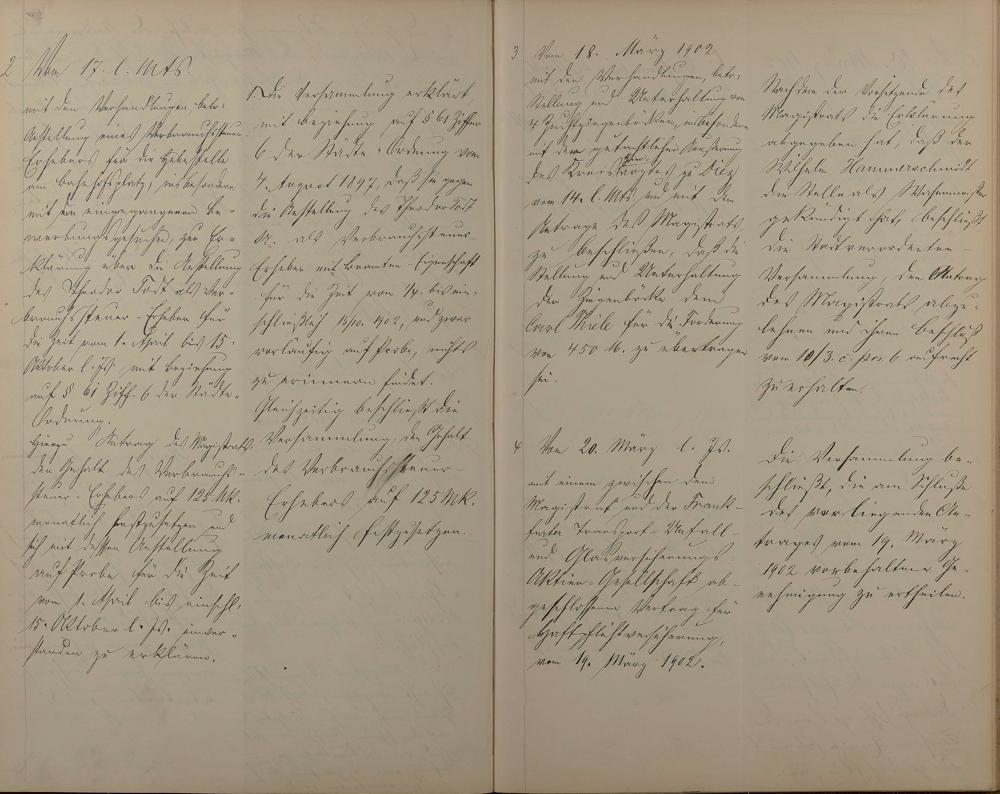 2 Vom 17. l. Mts.
mit den Verhandlungen, betr:
Anstellung eines Verbrauchssteuer-
Erhebers für die Hebestelle
am Bahnhofsplatz, insbesondere
mit den eingegangenen Be-
werbungsgesuchen, zur Er-
klärung über die Anstellung
des Theodor Todt als Ver-
brauchssteuer-Erheber für
die Zeit vom 1. April bis 15.
Oktober l. Js. mit Beziehung
auf § 61 Ziff. 6 der Städte-
Ordnung.
Hierzu Antrag des Magistrats,
den Gehalt des Verbrauchs-
steuer-Erhebers auf 125 Mk.
monatlich festzusetzen und
sich mit dessen Anstellung
auf Probe für die Zeit
vom 1. April bis einschl.
15. Oktober l. Js. einver-
standen zu erklären.
1. Die Versammlung erklärt
mit Beziehung auf § 61 Ziffer
6 der Städte-Ordnung vom
4. August 1897, daß sie gegen
die Anstellung des Theodor Todt
als Verbrauchssteuer-
Erheber mit Beamten-Eigenschaft
für die Zeit vom 1/4. bis ein-
schließlich 15/10. 1902, und zwar
vorläufig auf Probe, nichts
zu erinnern findet.
Gleichzeitig beschließt die
Versammlung, den Gehalt
des Verbrauchssteuer-
Erhebers auf 125 Mk.
monatlich festzusetzen.
3 Vom 18. März 1902
mit den Verhandlungen, betr:
Stellung und Unterhaltung von
4 Zuchtziegenböcken, insbesondere
mit der gutachtlichen Äußerung
des Kreistierarztes zu Diez
vom 14. l. Mts. und mit dem
Antrage des Magistrats
zu beschließen, daß die
Stellung und Unterhaltung
der Ziegenböcke dem
Carl Thiele für die Forderung
von 450 M. zu übertragen
sei.
Nachdem der Vorsitzende des
Magistrats die Erklärung
abgegeben hat, daß der
Wilhelm Hammerschmidt
die Stelle als
gekündigt hat, beschließt
die Stadtverordneten-
Versammlung, den Antrag
des Magistrats abzu-
lehnen und ihren Beschluß
vom 10/3. c. pos. 6 aufrecht
zu erhalten.
4 Vom 20. März l. Js.
mit einem zwischen dem
Magistrat und der Frank-
furter Transport- Unfall-
und Glasversicherungs-
Aktien-Gesellschaft ab-
geschlossenen Vertrag für
Haftpflichtversicherung,
vom 19. März 1902.
Die Versammlung be-
schließt, die am Schlusse
des vorliegenden An-
trages vom 19. März
1902 vorbehaltene Ge-
nehmigung zu ertheilen.